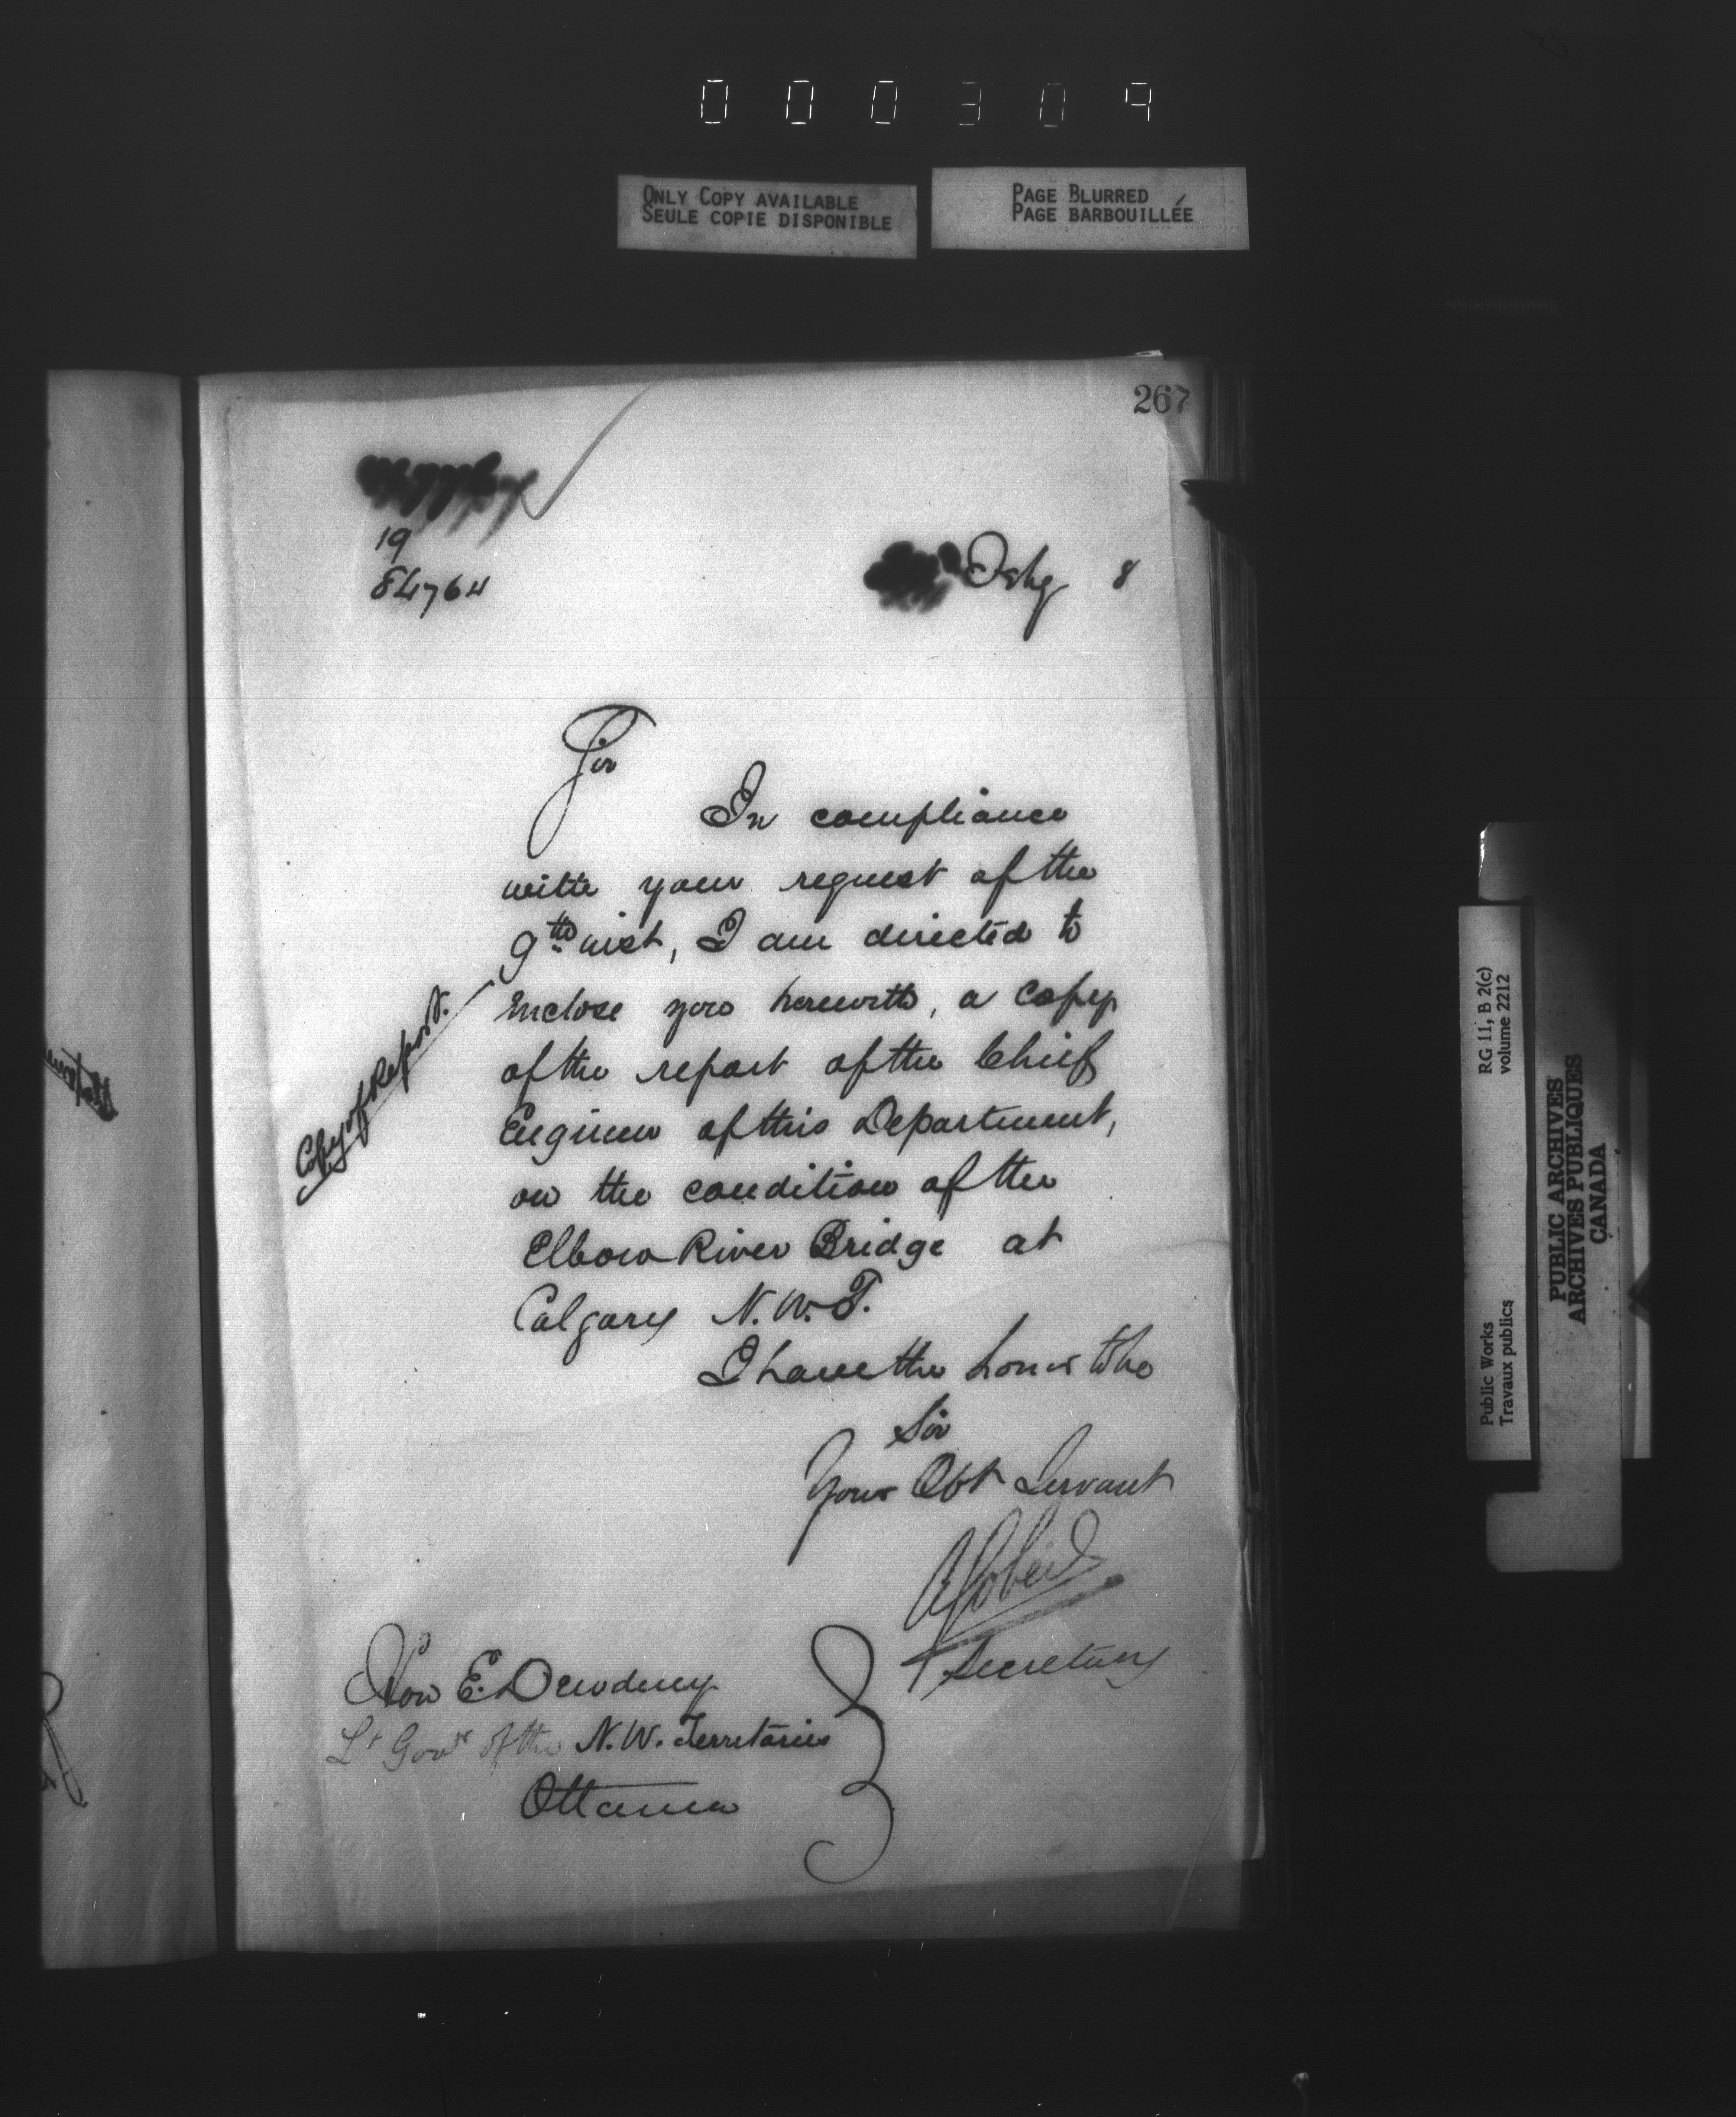 000309
ONLY COPY AVAILABLE
SEULE COPIE DISPONIBLE
PAGE BLURRED
PAGE BARBOUILLÉE
267
19
84764
8
Sir
In compliance
with your request of the
9th inst, I am directed to
enclose you herewith, a copy
of the report of the Chief
Engineer of this Department,
on the condition of the
Elbow River Bridge at
Calgary N.W.T.
Copy of Report.
I have the honor to be
Sir
Your Obt Servant
Secretary
Hon E. Dewdney
Lt Govr of the N.W. Territories
Ottawa
RG 11, B 2(c)
volume 2212
Public Works
Travaux publics
PUBLIC ARCHIVES
ARCHIVES PUBLIQUES
CANADA